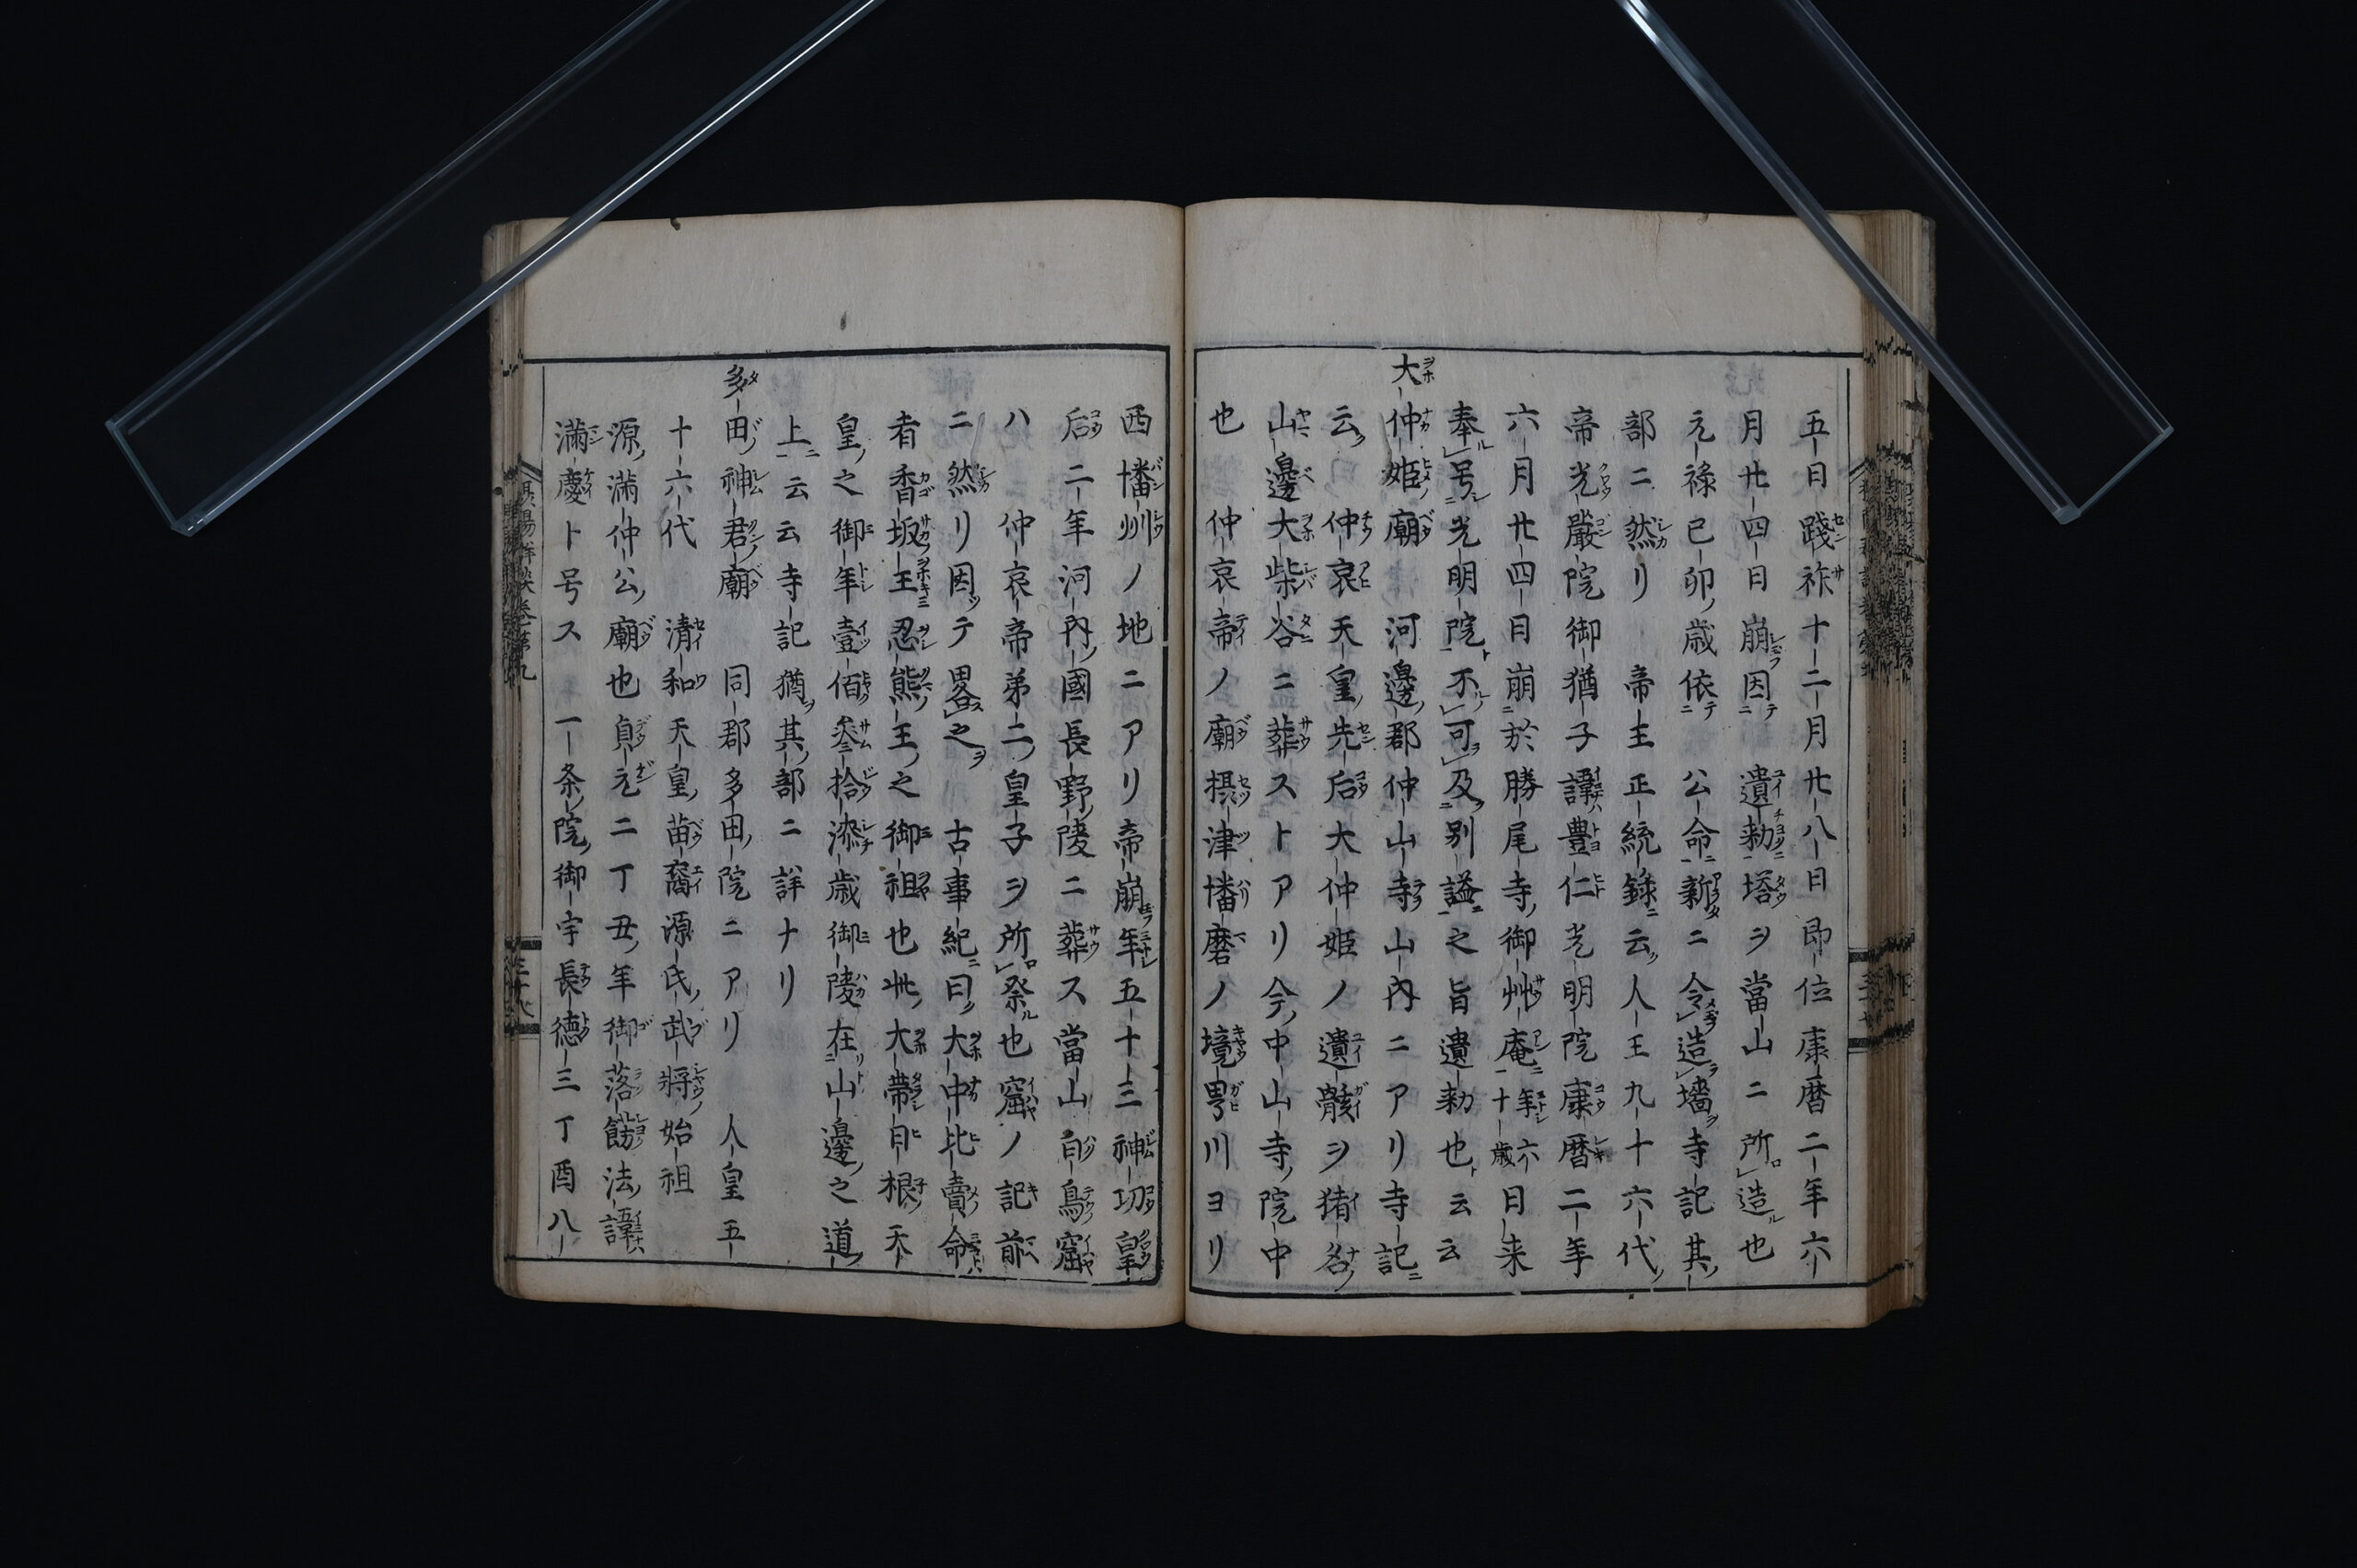 五日踐祚十二月廿八日即位康暦二年六
月廿四日崩因遺勅塔ヲ當山ニ所造也
元禄己卯歳依公命新ニ令造墻寺記其
部ニ然リ帝王正統録云人王九十六代
帝光嚴院御猶子諱豊仁光明院康暦二年
六月廿四日崩於勝尾寺御州庵年六十歳日来
奉号光明院不可及別謚之旨遺勅也云云
大仲姫廟河邊郡仲山寺山内ニアリ寺記
云仲哀天皇先后大仲姫ノ遺骸ヲ猪名
山邊大柴谷ニ葬ストアリ今中山寺院中
也仲哀帝ノ廟摂津幡磨ノ境界川ヨリ
西幡州ノ地ニアリ帝崩年五十三神功皇
后二年河内國長野陵ニ葬ス當山白鳥窟
ハ仲哀帝弟二皇子ヲ所祭也窟ノ記前
ニ然リ因テ畧之古事紀曰大中比賣命
者香坂王忍熊王之御祖也此大帶日根天
皇之御年壹佰參拾漆歳御陵在山邊之道
上云云寺記猶其部ニ詳ナリ
多田神君廟同郡多田院ニアリ人皇五
十六代清和天皇苗裔源氏武將始祖
源滿仲公廟也貞元二丁丑年御落餝法諱
滿慶ト号ス一条院御宇長德三丁酉八